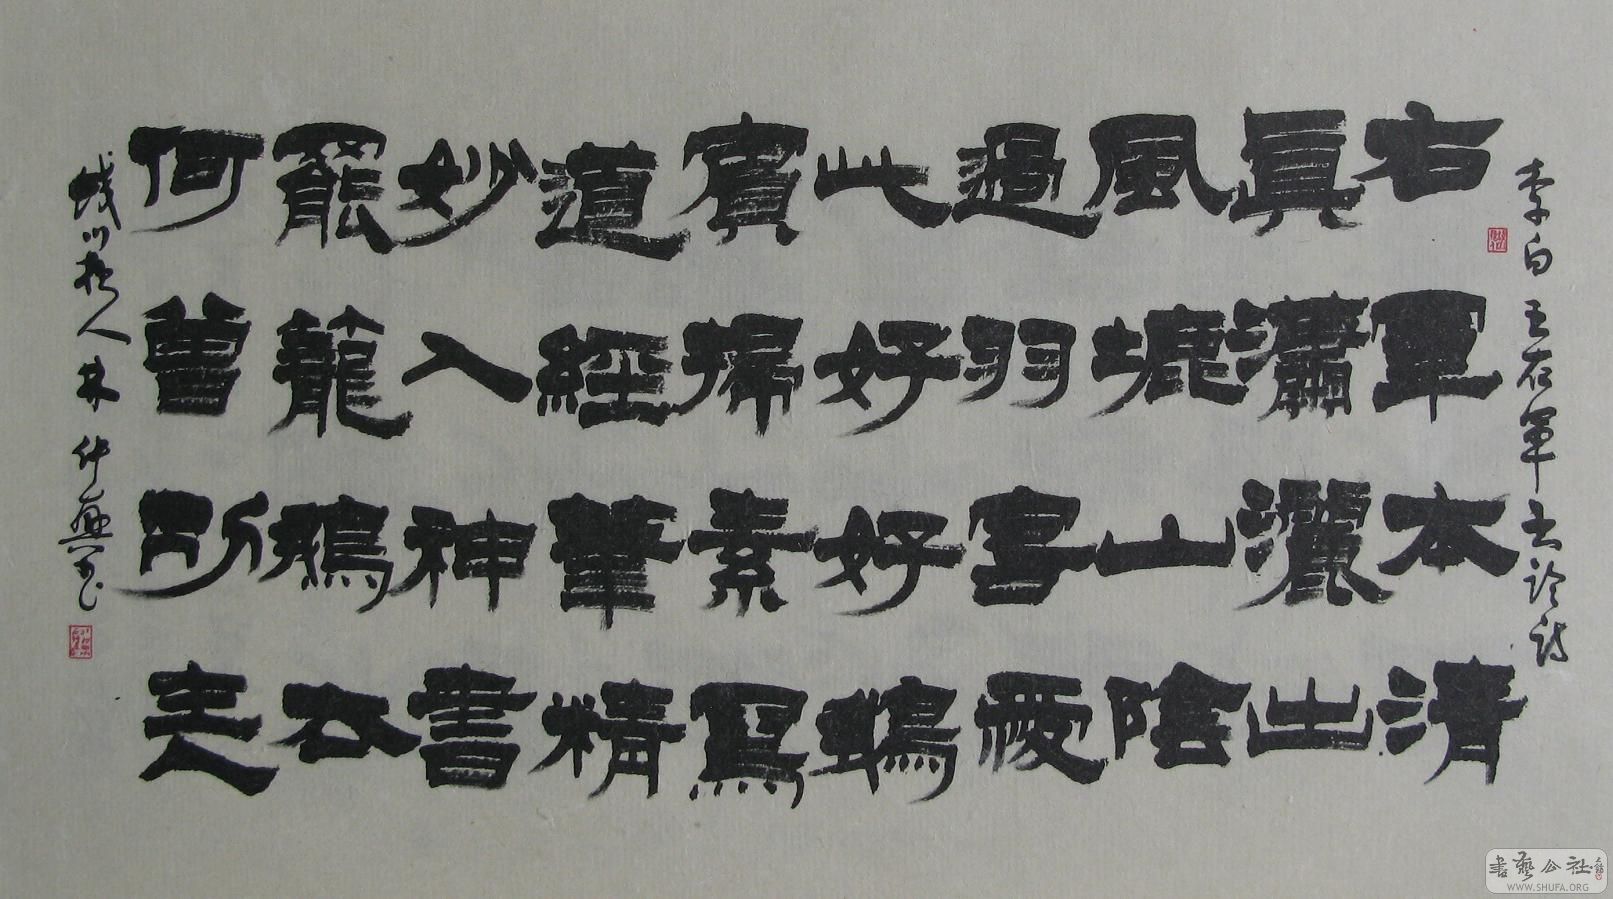 李白王右軍
右軍本清
眞瀟灑出
風塵山陰
過羽客愛
此好好鵝
賓掃素寫
道經筆精
妙入神書
罷籠鵝去
何曾別主人
人林仲興
書藝公社
WWW.SHUFA.ORG